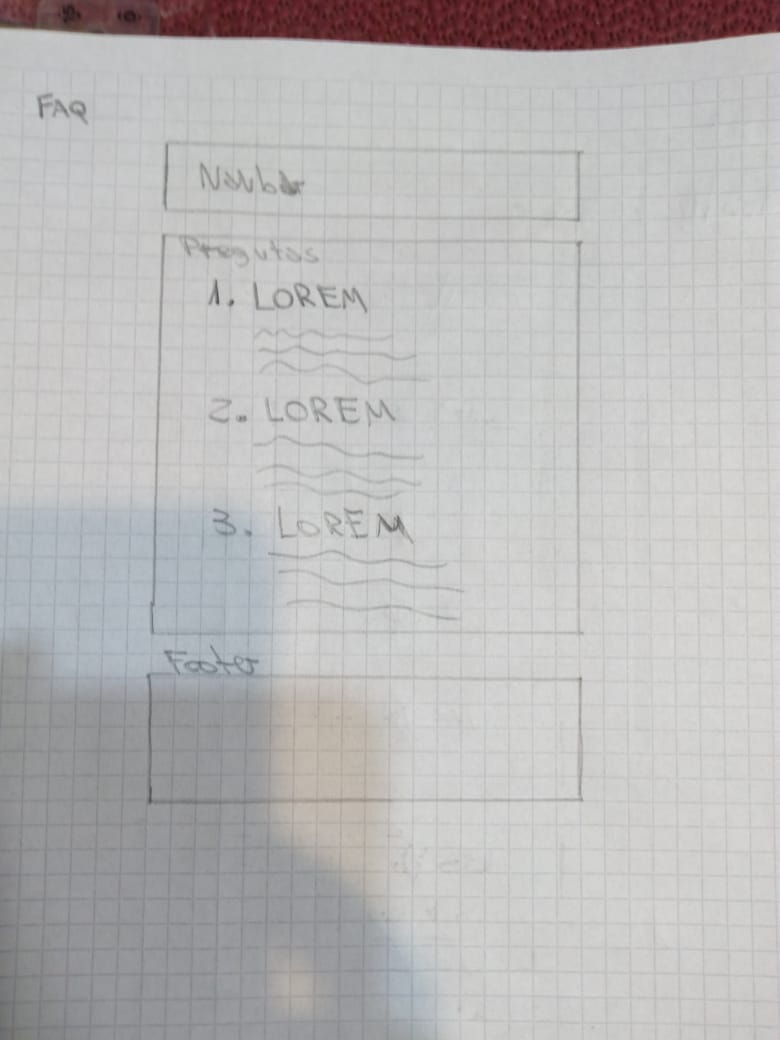 FAQ
Navbar
Pregutas
1. LOREM
2. LOREM
3. LOREM
Footer